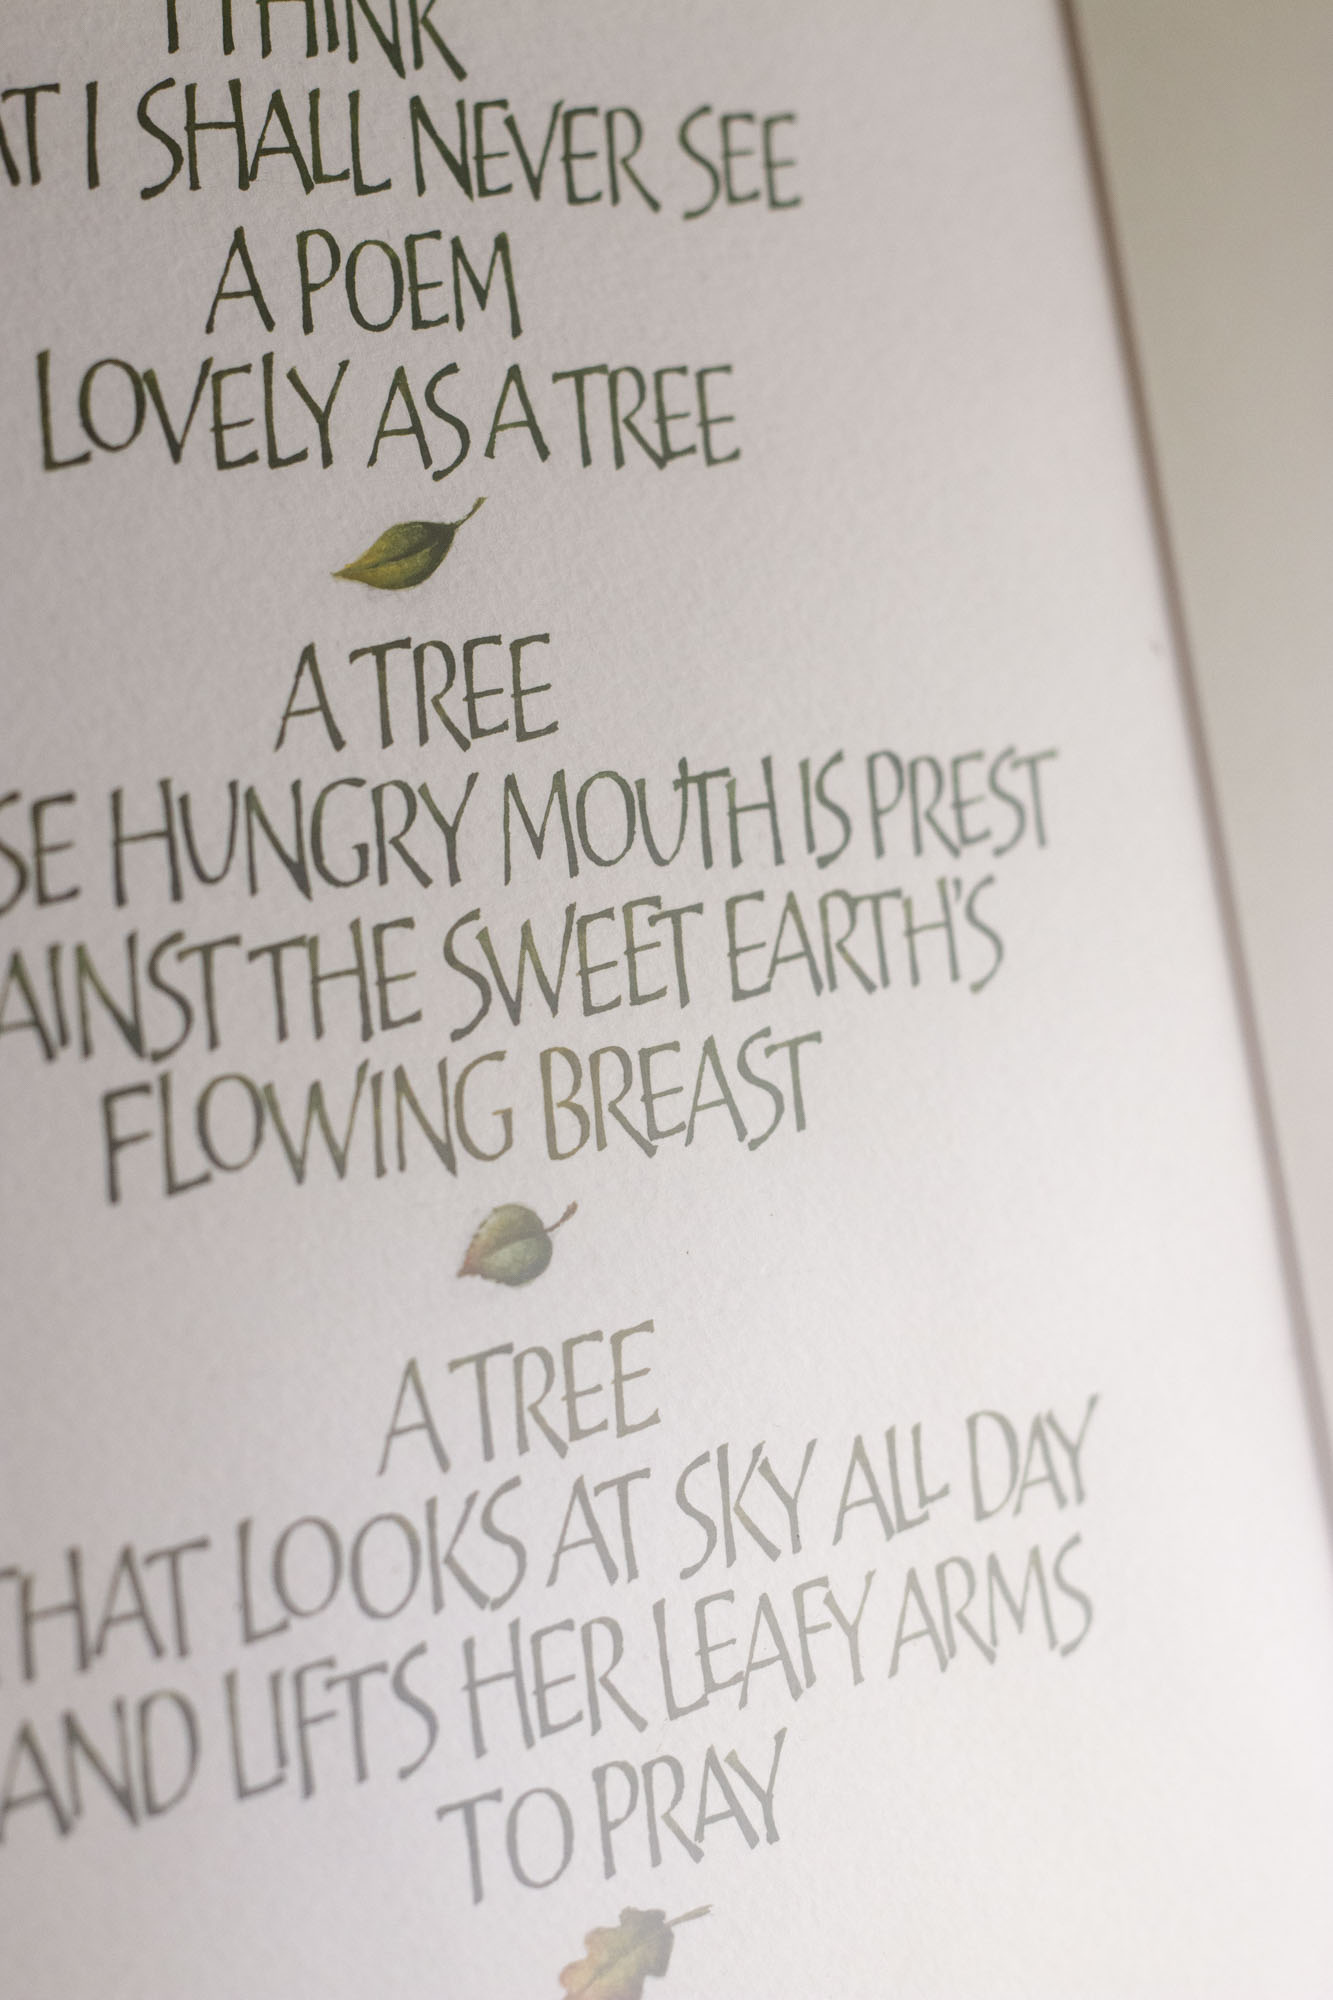 I THINK
AT I SHALL NEVER SEE
A POEM
LOVELY AS A TREE
A TREE
SE HUNGRY MOUTH IS PREST
AINST THE SWEET EARTH'S
FLOWING BREAST
A TREE
THAT LOOKS AT SKY ALL DAY
AND LIFTS HER LEAFY ARMS
TO PRAY